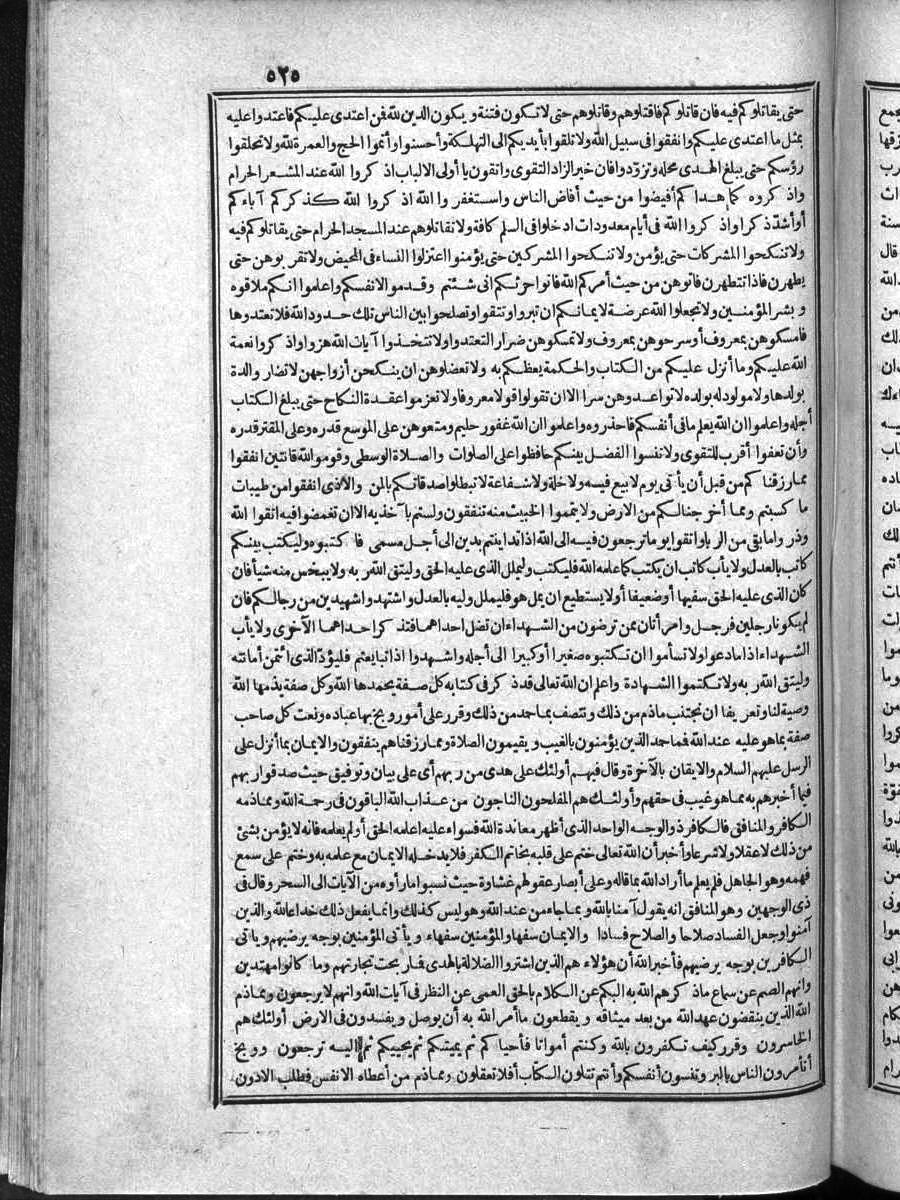 ٥٢٥
حتى يقاتلوكم فيه فان قاتلوكم فاقتلوهم وقاتلوهم حتى لا تكون فتنة ويكون الدين لله فن اعتدى عليكم فاعتدوا عليه
بمثل ما اعتدى عليكم وانفقوا فى سبيل الله ولا تلقوا بأيديكم الى التهلكة وأحسنوا وأتموا الحج والعمرة لله ولا تحلقوا
رؤسكم حتى يبلغ الهدى محله وتزوّدوا فان خير الزاد التقوى واتقون يا أولى الالباب اذكروا الله عند المشعر الحرام
واذكروه كما هداكم أفيضوا من حيث أفاض الناس واستغفروا الله اذكروا الله كذكركم آباءكم
أو أشدّ ذكرا واذكروا الله فى أيام معدودات ادخلوا فى السلم كافة ولا تقاتلوهم عند المسجد الحرام حتى يقاتلوكم فيه
ولا تنكحوا المشركات حتى يؤمن ولا تنكحوا المشركين حتى يؤمنوا اعتزلوا النساء فى المحيض ولا تقربوهن حتى
يطهرن فاذا تطهرن فأتوهن من حيث أمركم الله فاتوا حرثكم انى شئتم وقدموا لانفسكم واعلموا انكم ملاقوه
وبشر المؤمنين ولا تجعلوا الله عرضة لايمانكم ان تبروا وتتقوا وتصلحوا بين الناس تلك حدود الله فلا تعتدوها
فامسكوهن بمعروف أو سرحوهن بمعروف ولا تمسكوهن ضرارا لتعتدوا ولا تتخذوا آيات الله هزوا واذكروا نعمة
الله عليكم وما أنزل عليكم من الكتاب والحكمة يعظكم به ولا تعضلوهن ان ينكحن أزواجهن لا تضار والدة
بولدها ولا مولود له بولده لا تواعدوهن سرا الا ان تقولوا قولا معروفا ولا تعزموا عقدة النكاح حتى يبلغ الكتاب
أجله واعلموا ان الله يعلم ما فى أنفسكم فاحذروه واعلموا ان الله غفور حليم ومتعوهن على الموسع قدره وعلى المقتر قدره
وأن تعفوا أقرب للتقوى ولا تنسوا الفضل بينكم حافظوا على الصلوات والصلاة الوسطى وقوموا لله قانتين انفقوا
مما رزقناكم من قبل أن يأتى يوم لا بيع فيه ولا خلة ولا شفاعة لا تبطلوا صدقاتكم بالمن والاذى انفقوا من طيبات
ما كسبتم ومما أخرجنا لكم من الارض ولا تيمموا الخبيث منه تنفقون ولستم بآخذيه الا ان تغمضوا فيه اتقوا الله
وذروا ما بقى من الربا واتقوا يوما ترجعون فيه الى الله اذا تداينتم بدين الى أجل مسمى فاكتبوه وليكتب بينكم
كاتب بالعدل ولا يأب كاتب ان يكتب كما علمه الله فليكتب وليملل الذى عليه الحق وليتق الله ربه ولا يبخس منه شيأ فان
كان الذى عليه الحق سفيها أو ضعيفا أو لا يستطيع ان يمل هو فليملل وليه بالعدل واشتهدوا شهيدين من رجالكم فان
لم يكونا رجلين فرجل وامرأتان ممن ترضون من الشهداء ان تضل احداهما فتذكر احداهما الاخرى ولا يأب
الشهداء اذا ما دعوا ولا تسأموا ان تكتبوه صغيرا أو كبيرا الى أجله واشهدوا اذا تبايعتم فليؤدّ الذى ائتمن أمانته
وليتق الله ربه ولا تكتموا الشهادة واعلم ان الله تعالى قد ذكر فى كتابه كل صفة يحمدها الله وكل صفة يذمها الله
وصية لنا وتعريفا ان نجتنب ما ذم من ذلك ونتصف بما حمد من ذلك وقرر على أمور وبخ بها عباده ونعت كل صاحب
صفة بما هو عليه عند الله فما حمد الذين يؤمنون بالغيب ويقيمون الصلاة ومما رزقناهم ينفقون والايمان بما أنزل على
الرسل عليهم السلام والايقان بالآخرة وقال فيهم أولئك على هدى من ربهم أى على بيان وتوفيق حيث صدقوا ربهم
فيما أخبرهم به مما هو غيب فى حقهم وأولئك هم المفلحون الناجون من عذاب الله الباقون فى رحمة الله ومما ذمه
الكافر والمنافق فالكافر ذو الوجه الواحد الذى أظهر معاندة الله فسواء عليه اعلمه الحق أو لم يعلمه فانه لا يؤمن بشئ
من ذلك لا عقلا ولا شرعا وأخبر أن الله تعالى ختم على قلبه بخاتم الكفر فلا يدخله الايمان مع علمه به وختم على سمع
فهمه وهو الجاهل فلم يعلم ما أراد الله بما قاله وعلى أبصار عقولهم غشاوة حيث نسبوا ما رأوه من الآيات الى السحر وقال فى
ذى الوجهين وهو المنافق انه يقول آمنا بالله وبما جاء من عند الله وهو ليس كذلك وانما يفعل ذلك خداعا لله والذين
آمنوا وجعل الفساد صلاحا والصلاح فسادا والايمان سفها والمؤمنين سفهاء ويأتى المؤمنين بوجه يرضيهم ويأتى
الكافرين بوجه يرضيهم فأخبر الله أن هؤلاء هم الذين اشتروا الضلالة بالهدى فما ربحت تجارتهم وما كانوا مهتدين
وانهم الصم عن سماع ما ذكرهم الله به البكم عن الكلام بالحق العمى عن النظر فى آيات الله وانهم لا يرجعون ومما ذم
الله الذين ينقضون عهد الله من بعد ميثاقه ويقطعون ما أمر الله به أن يوصل ويفسدون فى الارض أولئك هم
الخاسرون وقرر كيف تكفرون بالله وكنتم أمواتا فأحياكم ثم يميتكم ثم يحييكم ثم اليه ترجعون ووبخ
أتأمرون الناس بالبر وتنسون أنفسكم وأنتم تتلون الكتاب أفلا تعقلون ومما ذم من أعطاه الانفس فطلب الادون